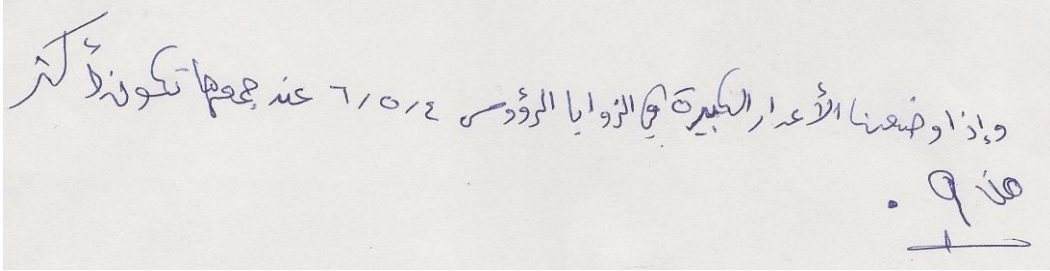 وإذا وضعنا الأعداد الكبيرة في الزوايا الرؤوس ٦،٥،٤ عند جمعها تكون أكثر
من ٩ .